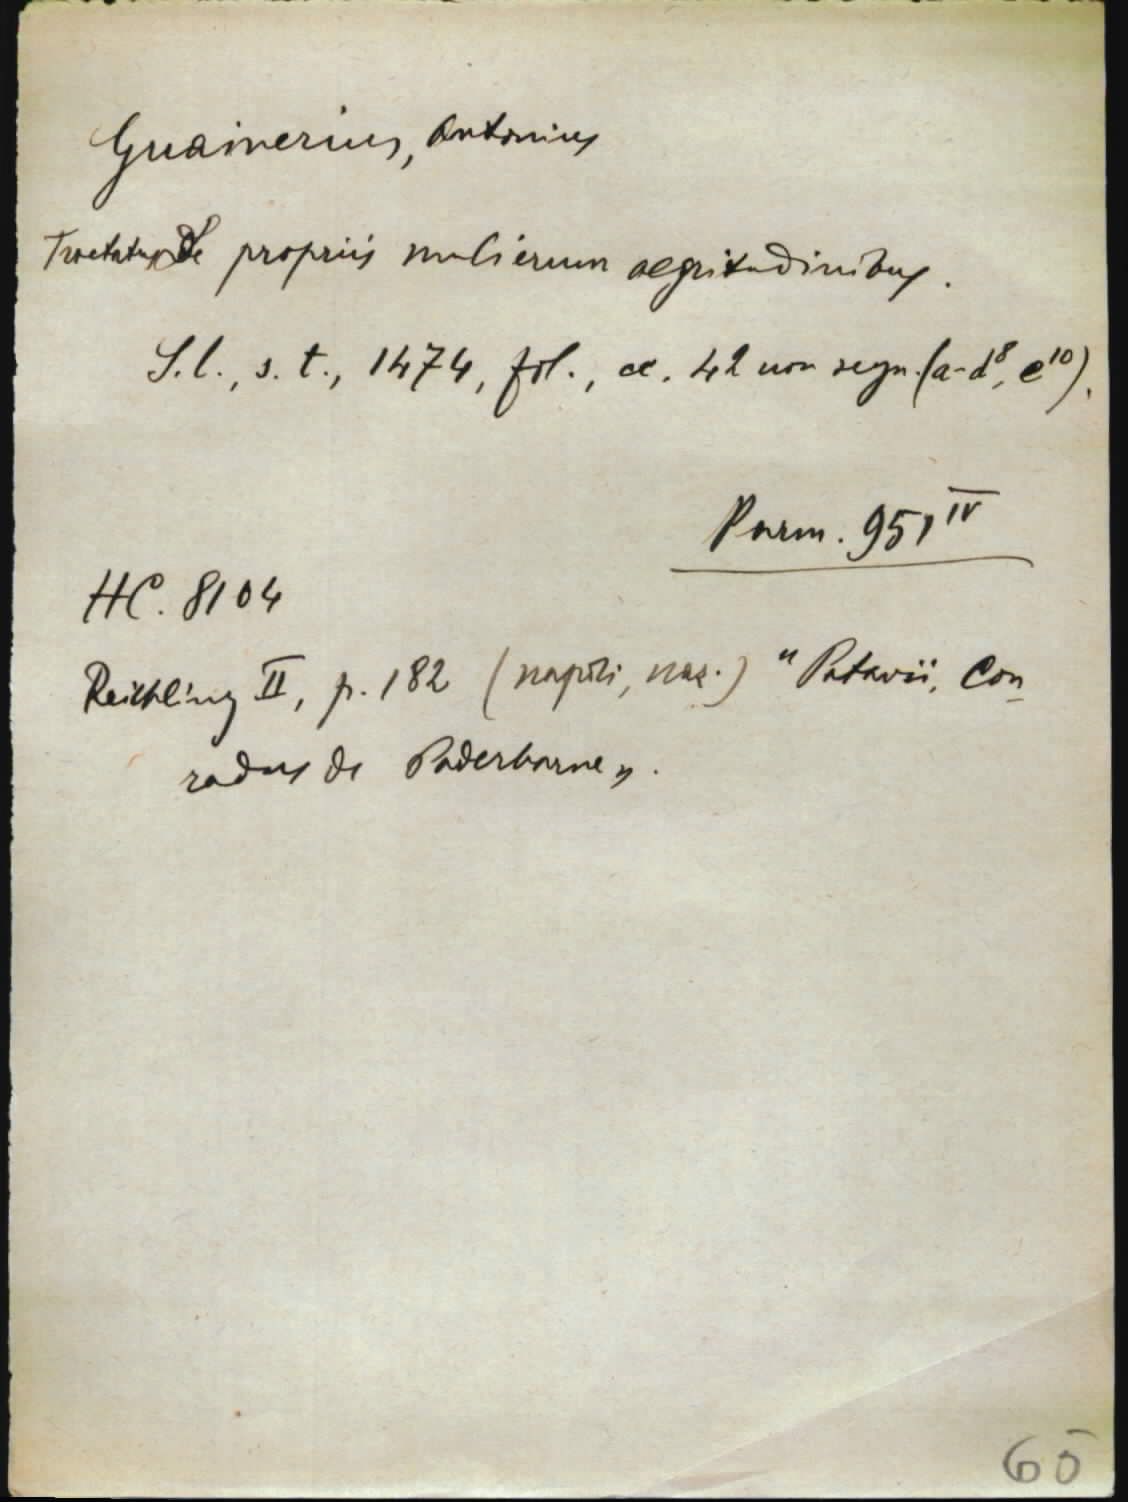 Guainerius, Antonius
Tractatus de propriis mulierum aegritudinibus.
S. l., s. t., 1474, fol., cc. 42 non segn. (a-d⁸, e¹⁰).
Parm. 951 IV
HC. 8104
Reichling II, p. 182 (Napoli, naz.) "Patavii, Con-
radus de Paderborne".
60